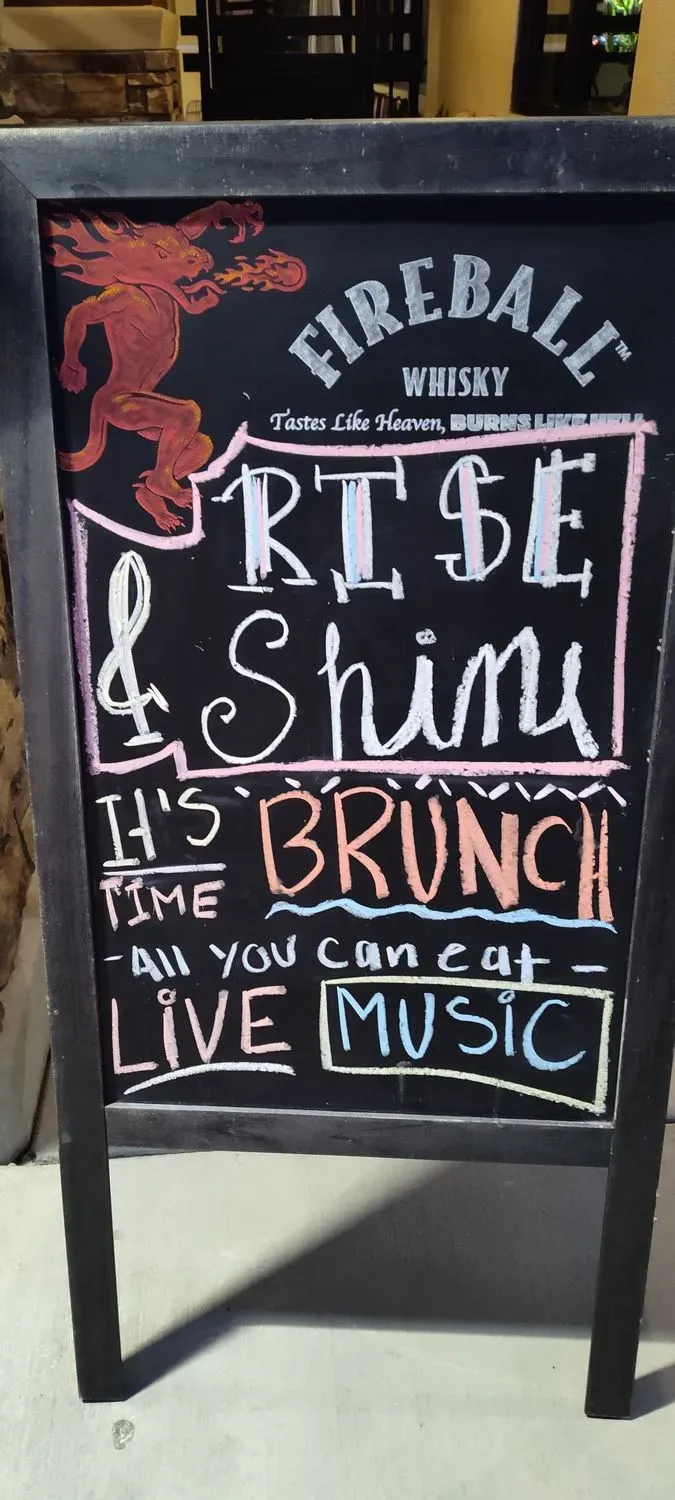 FIREBALL™
WHISKY
Tastes Like Heaven, BURNS LIKE HELL
RISE
& Shine
IT'S BRUNCH
TIME
-All YOU Can eat-
LiVE MUSiC